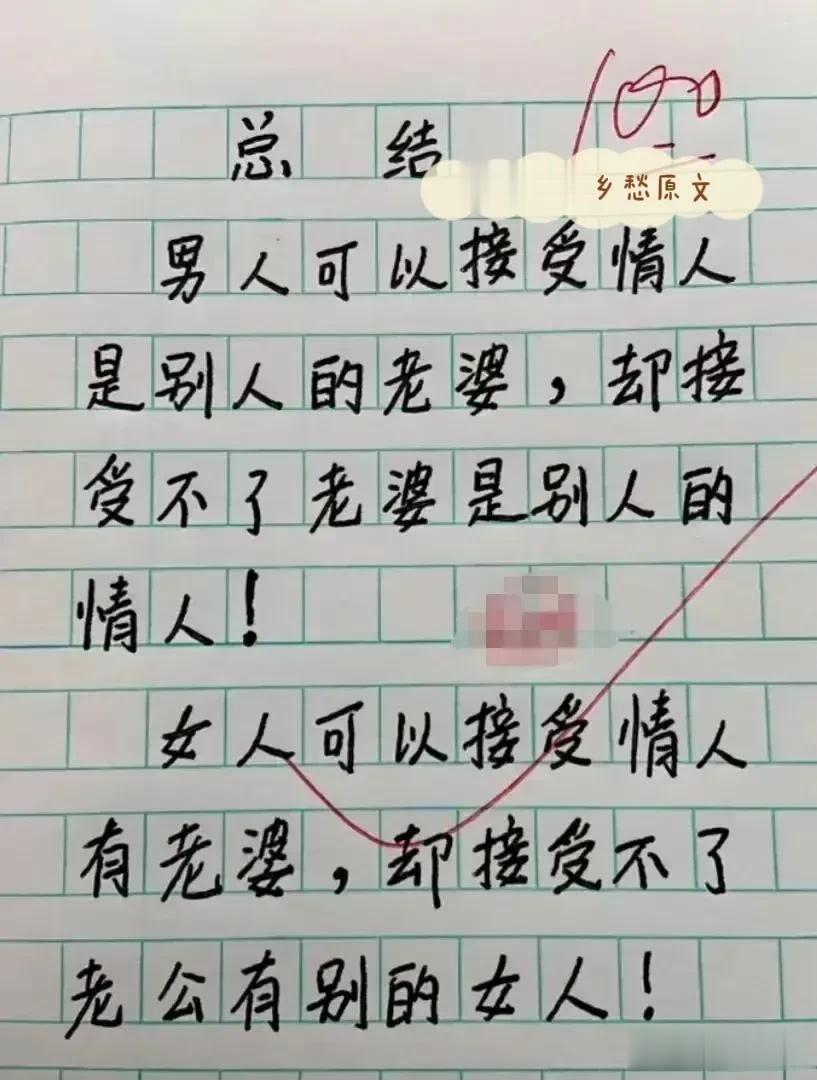 100
总结
乡愁原文
男人可以接受情人
是别人的老婆，却接
受不了老婆是别人的
情人！
女人可以接受情人
有老婆，却接受不了
老公有别的女人！